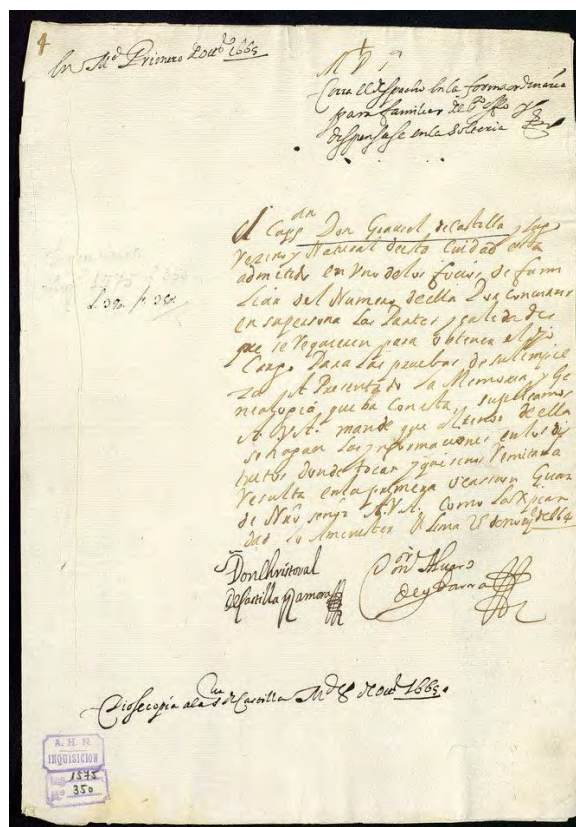 4
En M.d Primero de oct.e 1665
M. P. S.
Corra el despacho en la forma ordinaria
para familiar de s.to off.o y
dispensase en la Solteria
El Cap.n Don Gabriel de Castilla y Lugo
Vezino y Natural desta Ciudad esta
admitido en Uno de los de fami
liar del Numero de ella Por Concurrir
en su persona Las Partes y calidades
que se requieren para obtener el dho
Cargo. Para las pruebas de su limpie
za A Presentado la Memoria y Ge
nealogia, que ba Con esta, suplicamos
A V.A. mande que al tenor de ella
se hagan las ynformaciones en los dis
tritos donde tocan y que se nos Remita la
resulta en la primera ocasion Guar
de Nro senor A. V.A. Como la Xpian
dad lo A menester Lima 25 de nou.e de 664
Don Christoual
de Castilla Zamora
D.or Don Aluaro
de Ybarra
Diose copia a la S.ria de Castilla M.d 8 de oct.e 1665
A. H. N.
INQUISICION
Leg. 1575
Nº 350